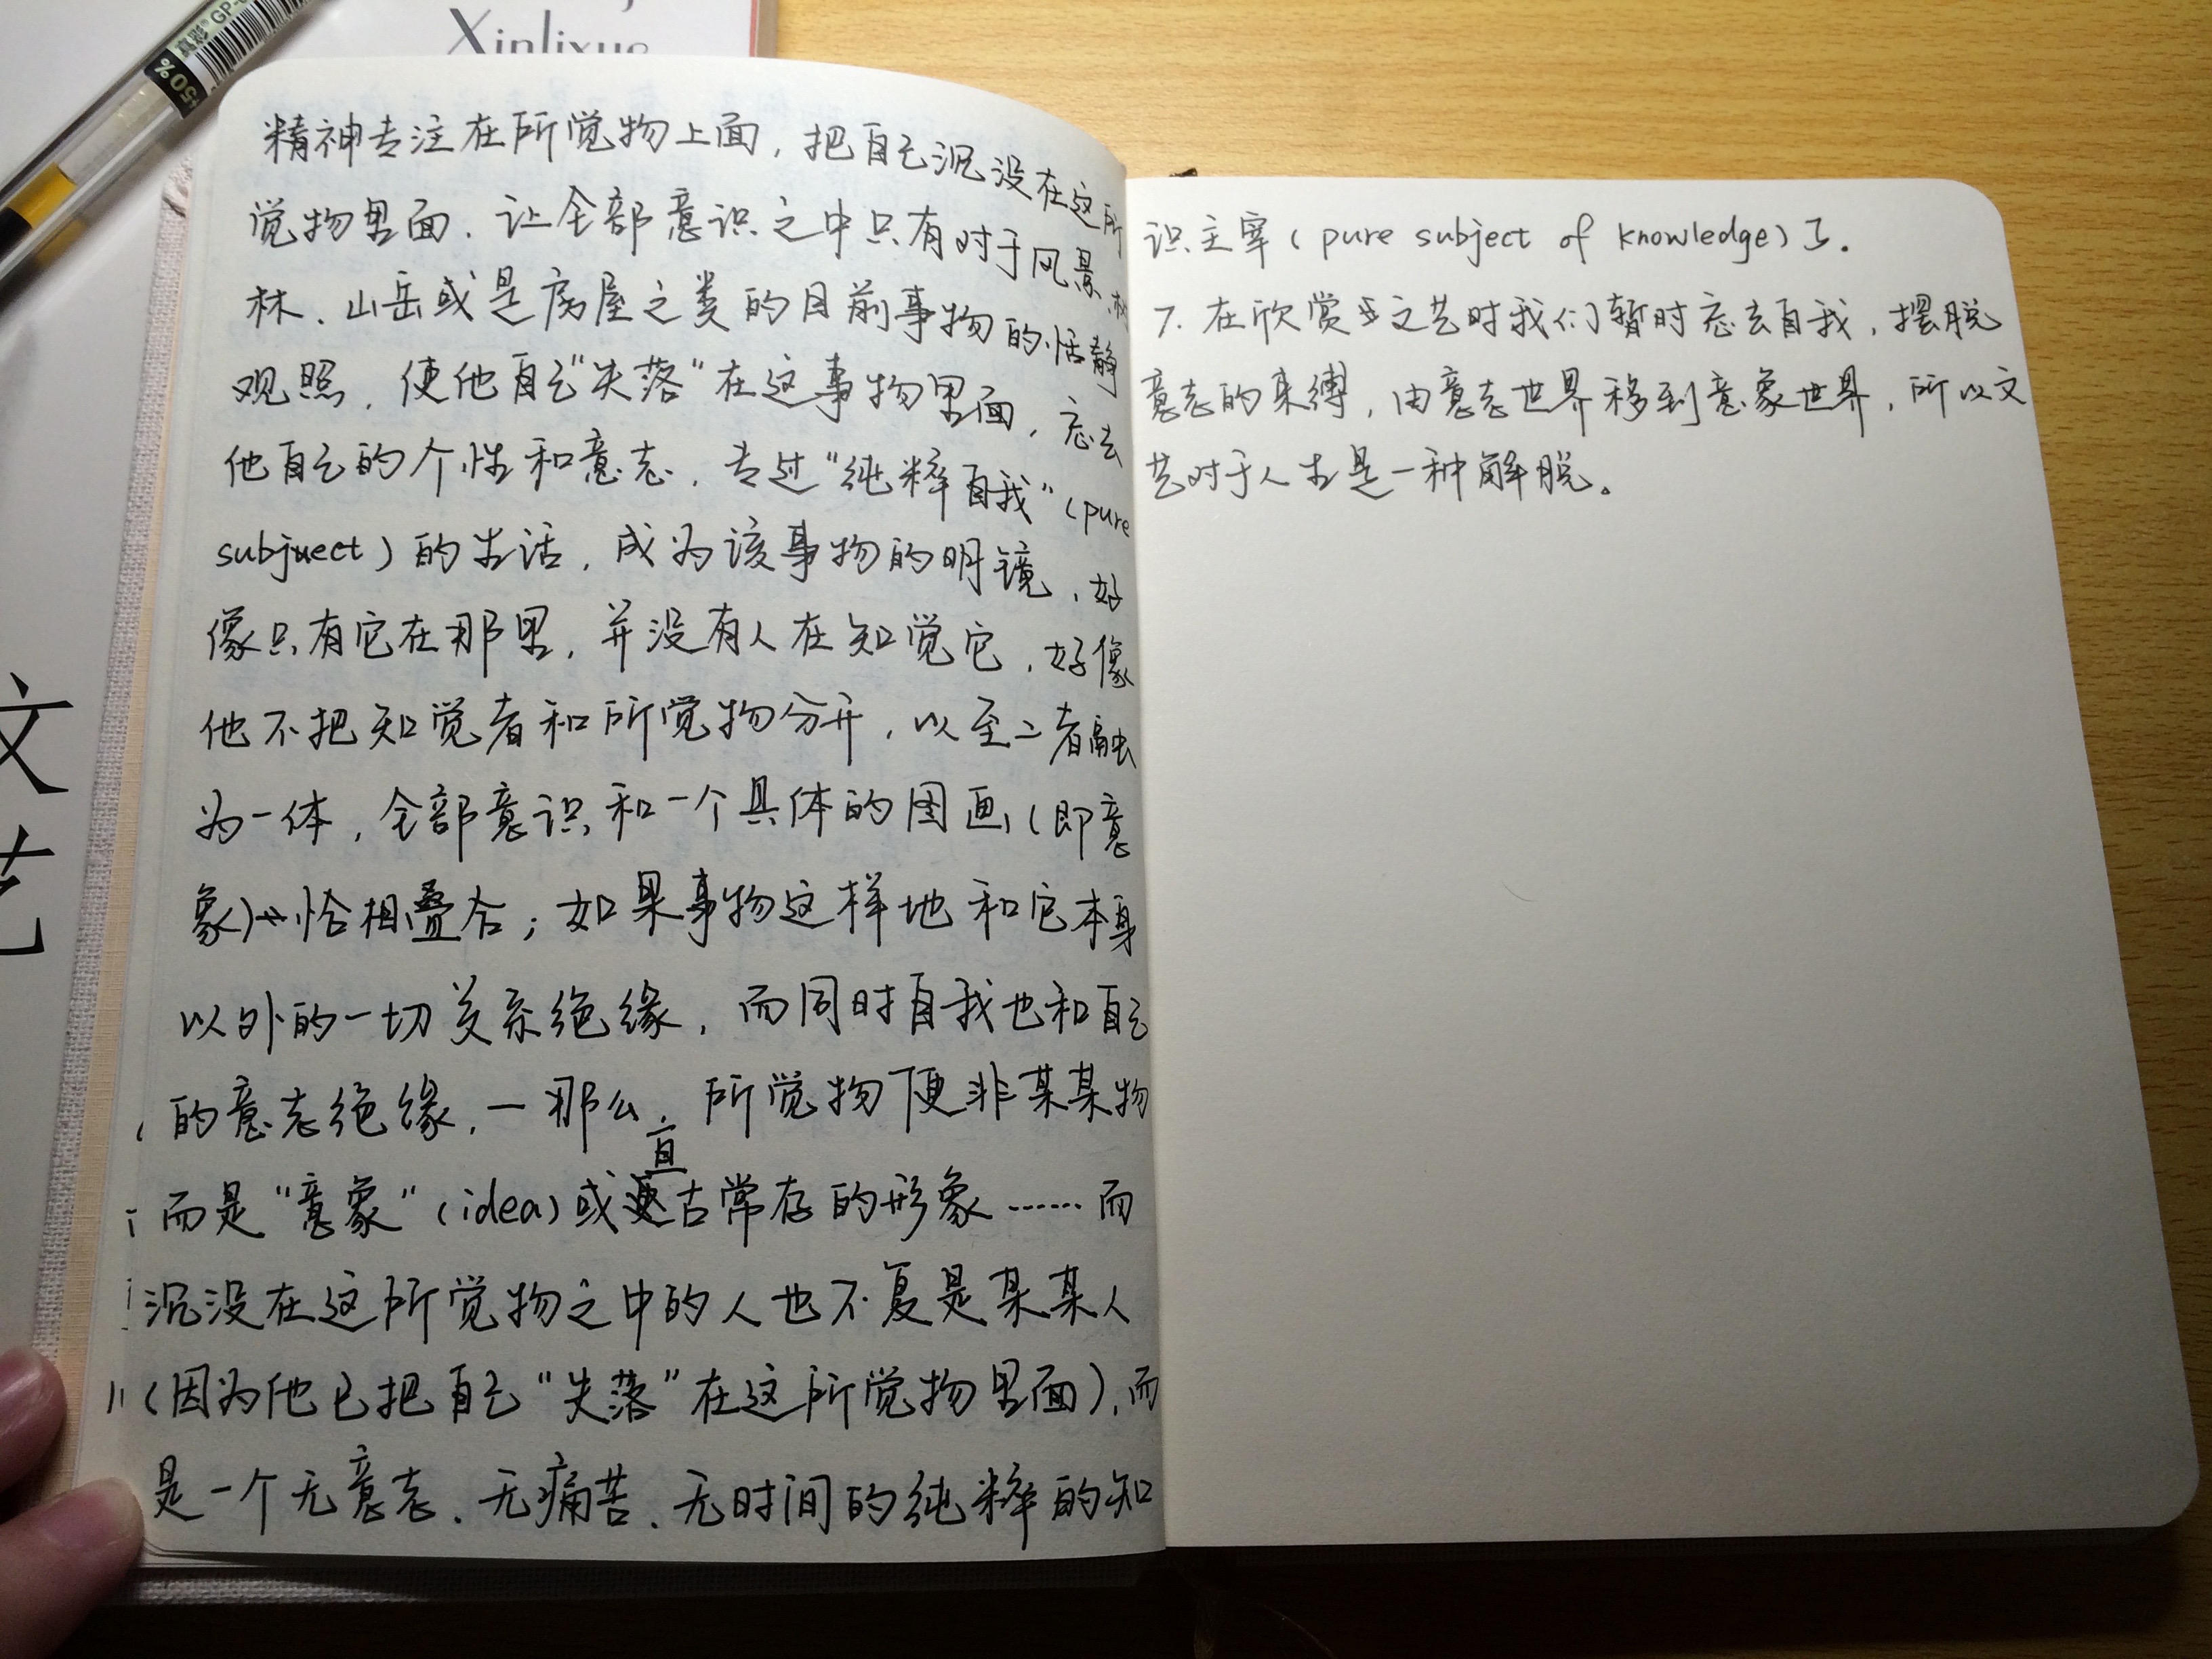 Xinlixue
真彩
GP-
+50%
文
艺
精神专注在所觉物上面，把自己沉没在这所
觉物里面，让全部意识之中只有对于风景、树
林、山岳或是房屋之类的目前事物的恬静
观照，使他自己“失落”在这事物里面，忘去
他自己的个性和意志，专过“纯粹自我”（pure
subjuect）的生活，成为该事物的明镜，好
像只有它在那里，并没有人在知觉它，好像
他不把知觉者和所觉物分开，以至二者融
为一体，全部意识和一个具体的图画（即意
象）恰相叠合；如果事物这样地和它本身
以外的一切关系绝缘，而同时自我也和自己
的意志绝缘，—那么，所觉物便非某某物
而是“意象”（idea）或亘古常存的形象……而
沉没在这所觉物之中的人也不复是某某人
（因为他已把自己“失落”在这所觉物里面），而
是一个无意志、无痛苦、无时间的纯粹的知
识主宰（pure subject of knowledge）了。
7. 在欣赏文艺时我们暂时忘去自我，摆脱
意志的束缚，由意志世界移到意象世界，所以文
艺对于人生是一种解脱。